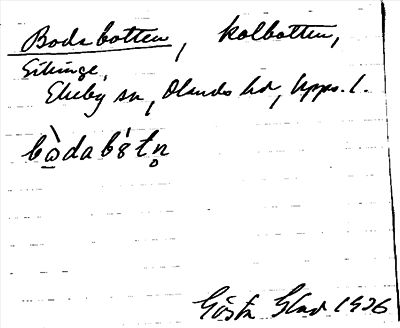 Bodabotten, kolbotten,
Giringe,
Ekeby sn, Olands hd, Upps. l.
bὼdabótn̥
Gösta Glad 1926